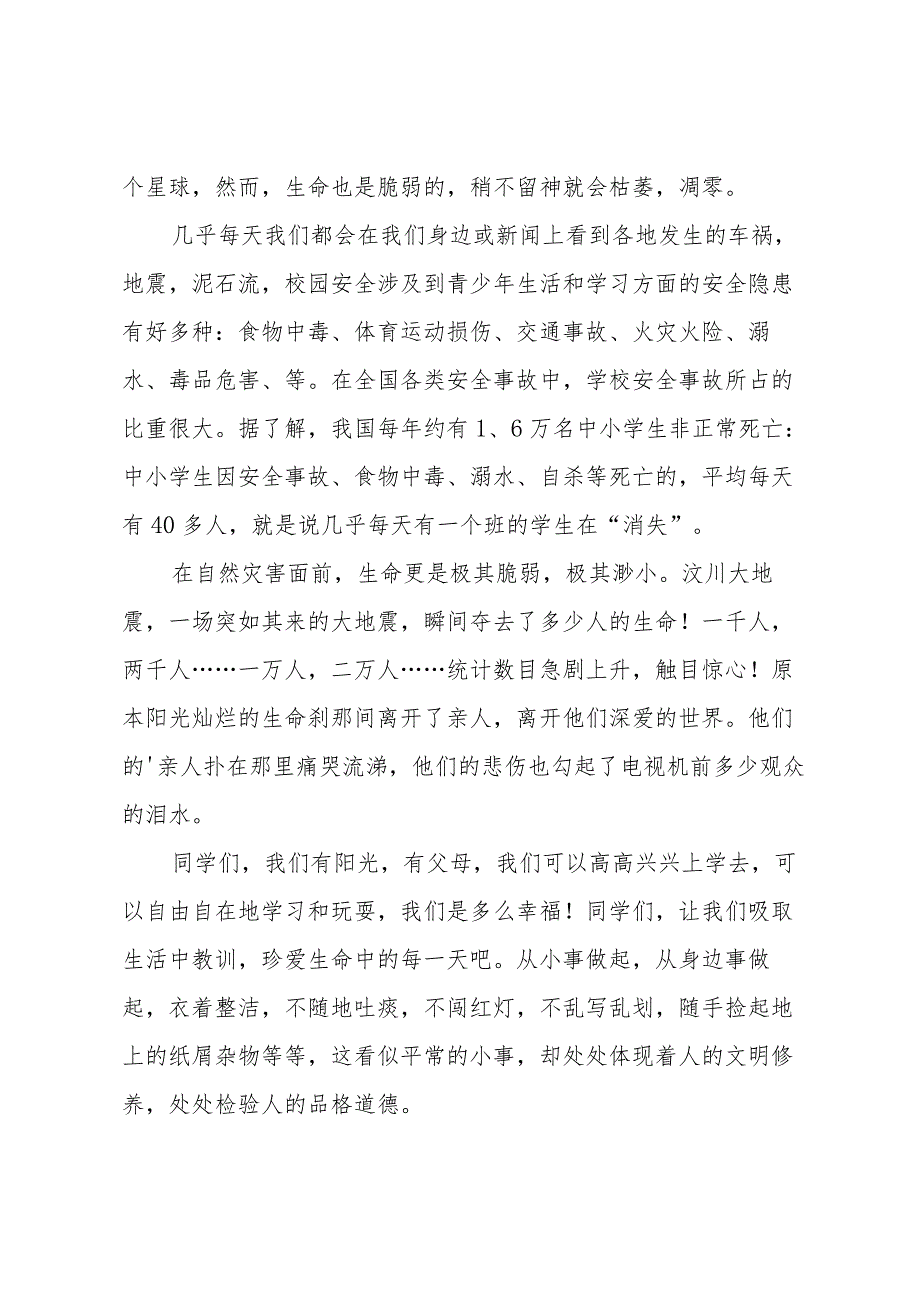 个星球，然而，生命也是脆弱的，稍不留神就会枯萎，凋零。
几乎每天我们都会在我们身边或新闻上看到各地发生的车祸，
地震，泥石流，校园安全涉及到青少年生活和学习方面的安全隐患
有好多种：食物中毒、体育运动损伤、交通事故、火灾火险、溺
水、毒品危害、等。在全国各类安全事故中，学校安全事故所占的
比重很大。据了解，我国每年约有1、6万名中小学生非正常死亡：
中小学生因安全事故、食物中毒、溺水、自杀等死亡的，平均每天
有40多人，就是说几乎每天有一个班的学生在“消失”。
在自然灾害面前，生命更是极其脆弱，极其渺小。汶川大地
震，一场突如其来的大地震，瞬间夺去了多少人的生命！一千人，
两千人……一万人，二万人……统计数目急剧上升，触目惊心！原
本阳光灿烂的生命刹那间离开了亲人，离开他们深爱的世界。他们
的'亲人扑在那里痛哭流涕，他们的悲伤也勾起了电视机前多少观众
的泪水。
同学们，我们有阳光，有父母，我们可以高高兴兴上学去，可
以自由自在地学习和玩耍，我们是多么幸福！同学们，让我们吸取
生活中教训，珍爱生命中的每一天吧。从小事做起，从身边事做
起，衣着整洁，不随地吐痰，不闯红灯，不乱写乱划，随手捡起地
上的纸屑杂物等等，这看似平常的小事，却处处体现着人的文明修
养，处处检验人的品格道德。